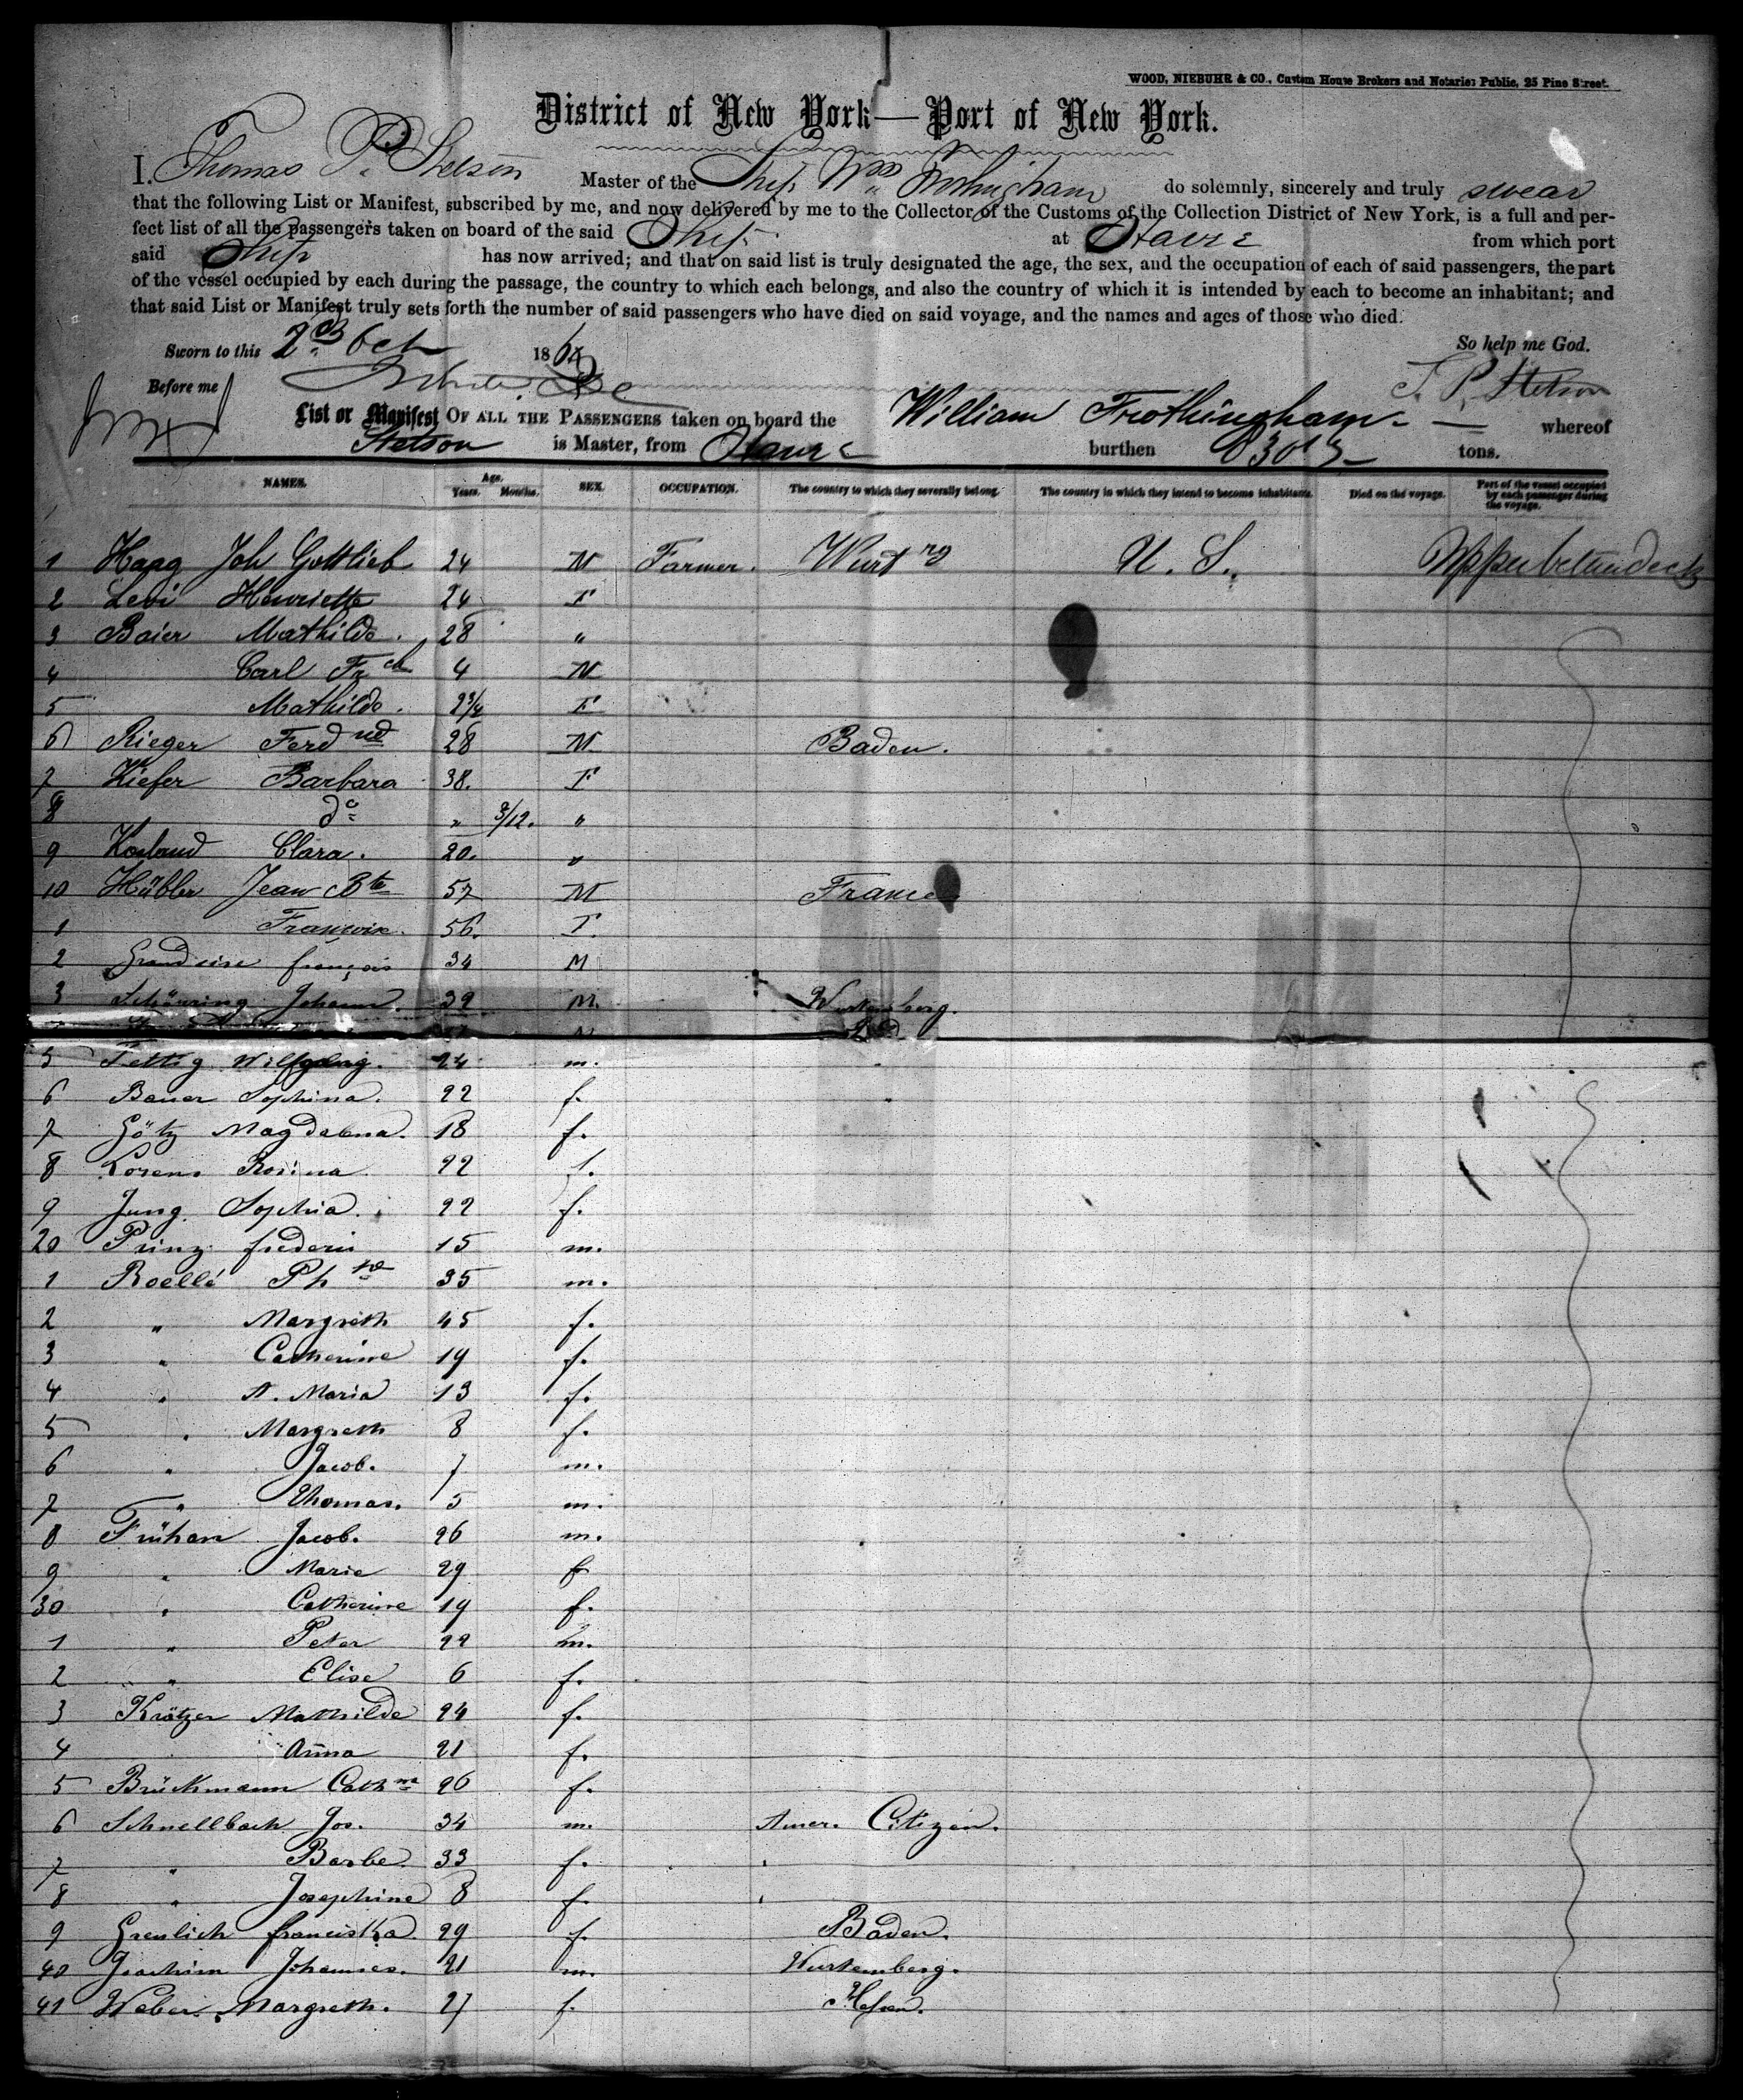 WOOD, NIEBUHR & CO., Custom House Brokers and Notaries Public, 25 Pine Street.
District of New York — Port of New York.
I, Thomas P. Stetson Master of the Ship Wm Frothingham do solemnly, sincerely and truly swear
that the following List or Manifest, subscribed by me, and now delivered by me to the Collector of the Customs of the Collection District of New York, is a full and per-
fect list of all the passengers taken on board of the said Ship at Havre from which port
said Ship has now arrived; and that on said list is truly designated the age, the sex, and the occupation of each of said passengers, the part
of the vessel occupied by each during the passage, the country to which each belongs, and also the country of which it is intended by each to become an inhabitant; and
that said List or Manifest truly sets forth the number of said passengers who have died on said voyage, and the names and ages of those who died.
Sworn to this 2d Oct 186 So help me God.
Before me T. P. Stetson
List or Manifest OF ALL THE PASSENGERS taken on board the William Frothingham whereof
Stetson is Master, from Havre burthen 830 tons.
NAMES. Age. Years. Months. SEX. OCCUPATION. The country to which they severally belong. The country in which they intend to become inhabitants. Died on the voyage. Part of the vessel occupied by each passenger during the voyage.
1 Haag Joh Gottlieb 24 M Farmer. Wurt rg U. S. Upper betundeck
2 Levi Henriette 24 F
3 Baier Mathilde. 28 "
4 Carl Frch 4 M
5 Mathilde. 2 3/4 F
6 Rieger Ferd nd 28 M Baden.
7 Kiefer Barbara 38. F
8 do " 3/12. "
9 Clara. 20. "
10 Hübler Jean Bte 57 M France
1 56. F.
2 françois 34 M
3 Schönring Johann. 32 M. Wurtemberg.
5 Fettig 24 m.
6 Bauer Sophina. 22 f.
7 Götz Magdalena. 18 f.
8 Lorenz Rosina 22 f.
9 Jung Sophia. 22 f.
20 Prinz frederic 15 m.
1 Roellé Ph 35 m.
2 " Margreth 45 f.
3 " Catherine 19 f.
4 " A. Maria 13 f.
5 " Margreth 8 f.
6 " Jacob. 7 m.
7 " Thomas. 5 m.
8 Frühan Jacob. 26 m.
9 " Marie 29 f
30 " Catherine 19 f.
1 " Peter 22 m.
2 " Elise 6 f.
3 Krötzer Mathilde 24 f.
4 Anna 21 f.
5 Brückmann Cath ne 26 f.
6 Schnellbach Jos. 34 m. Amer. Citizen.
7 " Barbe. 33 f. "
8 " Josephine 8 f. "
9 Greulich franciska. 29 f. Baden.
40 Joachim Johannes. 21 m. Wurtemberg.
41 Weber Margreth. 27 f. Hessen.